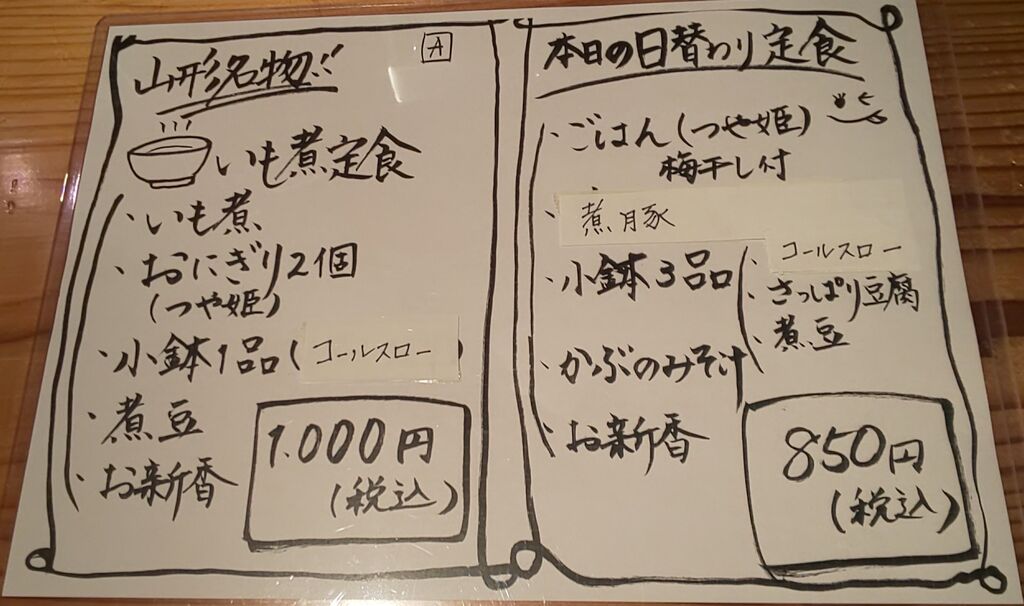 山形名物!!
A
いも煮定食
・いも煮
・おにぎり2個
(つや姫)
・小鉢1品(コールスロー)
・煮豆
・お新香
1.000円
(税込)
本日の日替わり定食
・ごはん(つや姫)
梅干し付
・煮豚
・小鉢3品
・コールスロー
・さっぱり豆腐
・煮豆
・かぶのみそ汁
・お新香
850円
(税込)